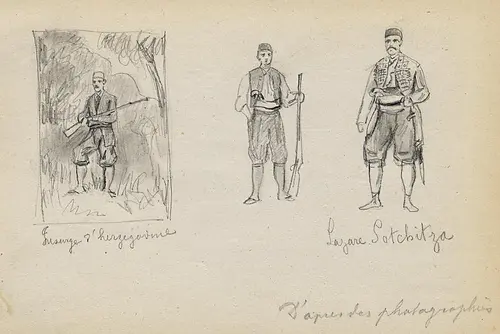 Insurgé d'herzégovine
Lazare Sotchitza
D'après des photographies